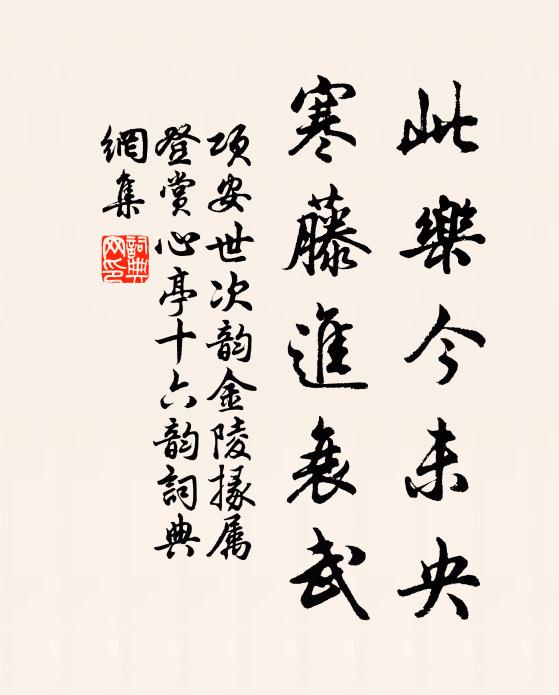 此樂今未央
寒藤進衰武
項安世次韵金陵掾属
登賞心亭十六韵詞典
網集
詞典網印